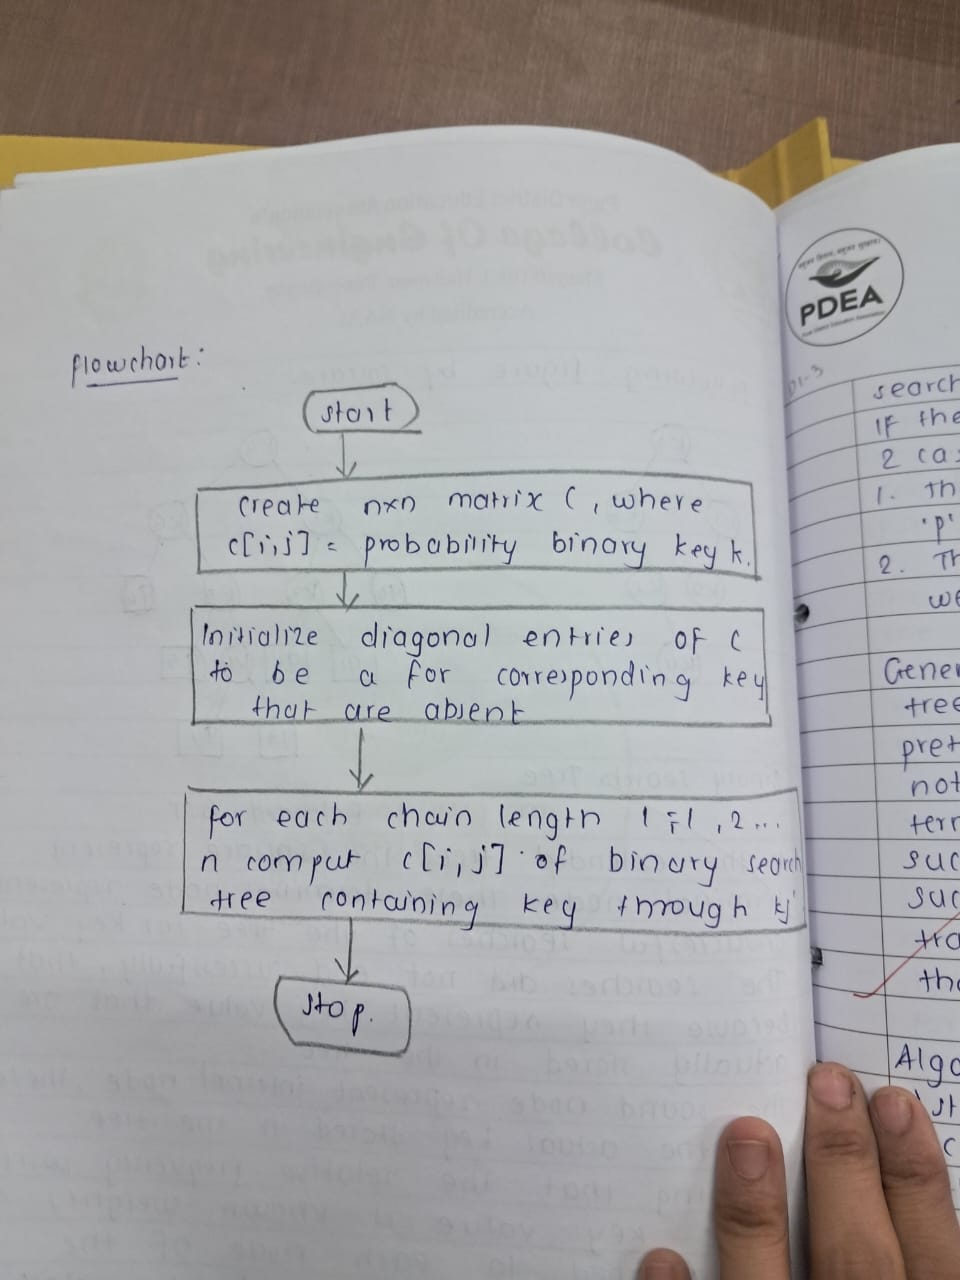 flowchart:
start
create nxn matrix C, where
c[i,j] = probability binary key k.
Initialize diagonal entries of C
to be a for corresponding key
that are absent
for each chain length l = 1, 2...
n comput c[i,j] of binary search
tree containing key through kj
stop.
PDEA
search
If the
2 cas
1. Th
'p'
2. Th
we
Gener
tree
pret
not
term
suc
suc
tra
tha
Algo